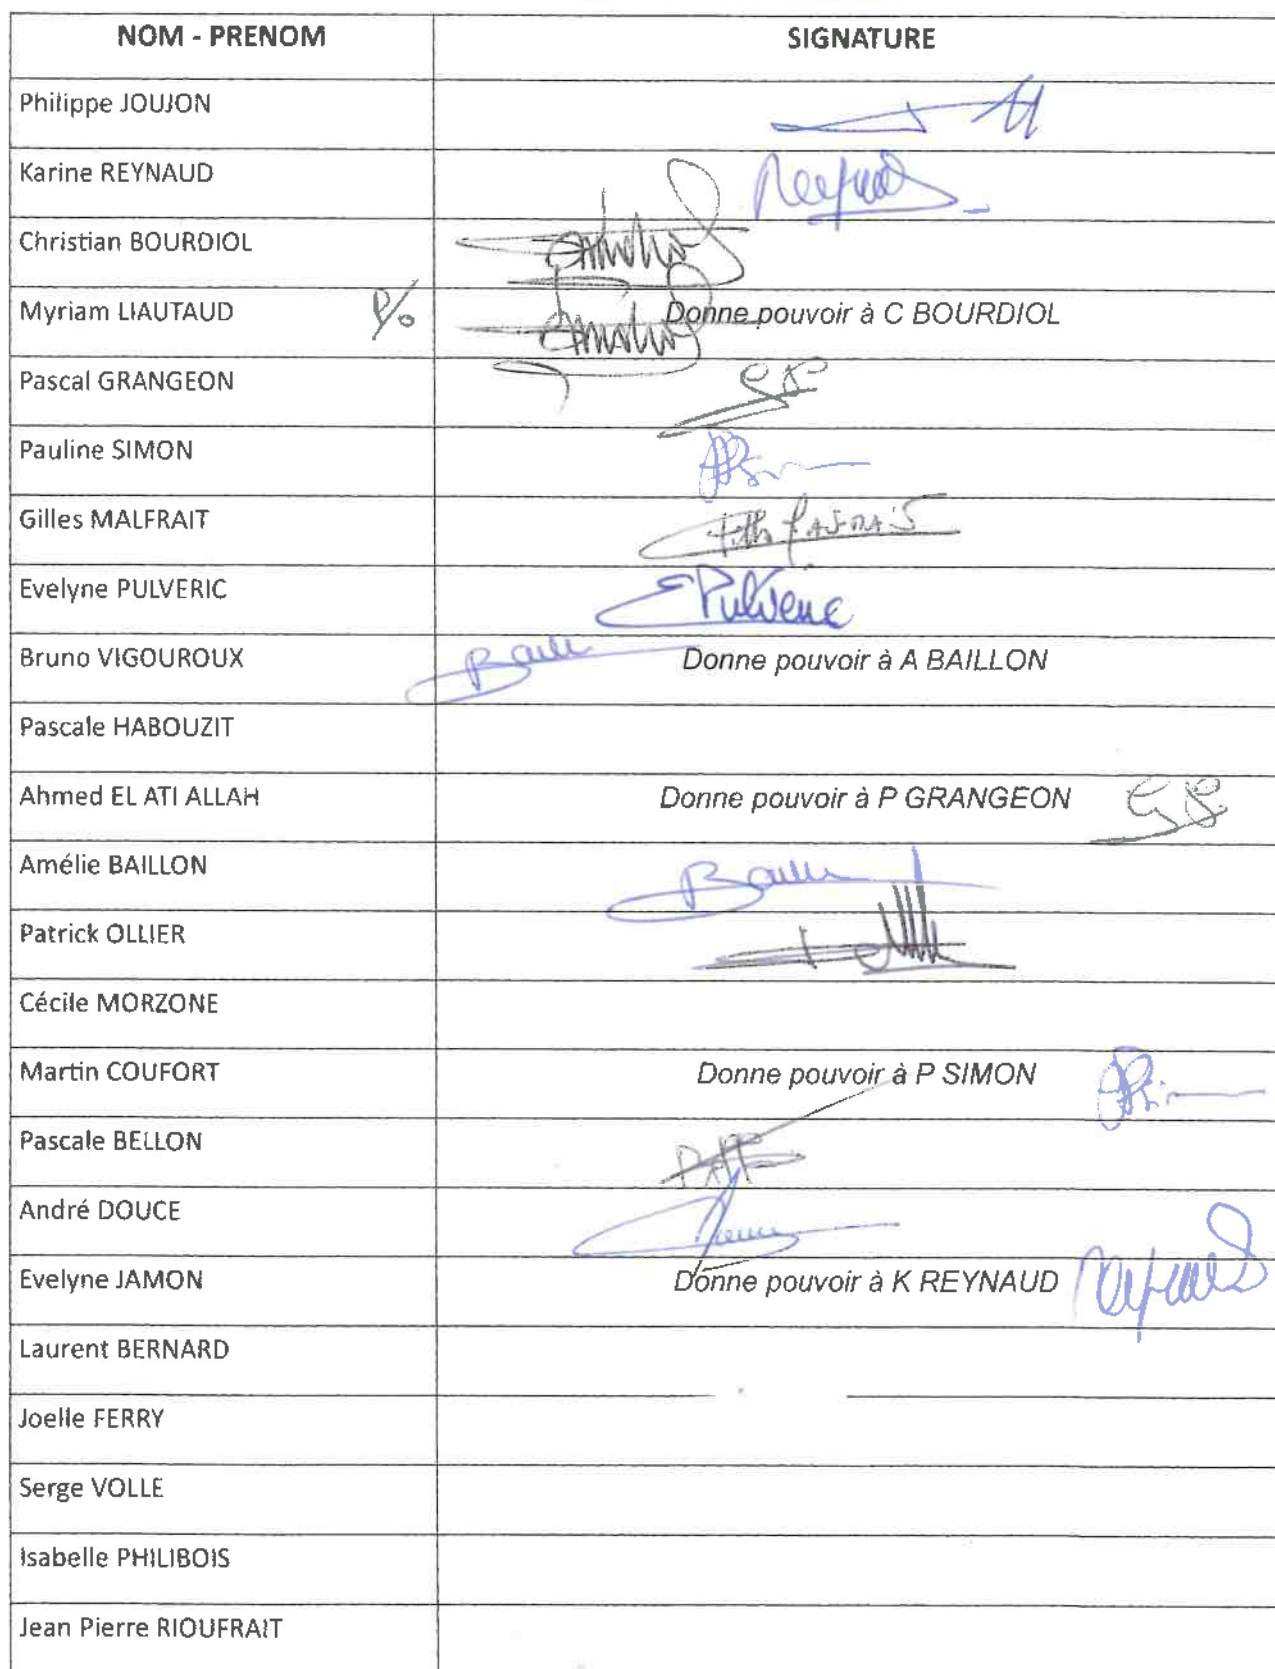 NOM - PRENOM SIGNATURE
Philippe JOUJON
Karine REYNAUD Reynaud
Christian BOURDIOL
Myriam LIAUTAUD P/o Donne pouvoir à C BOURDIOL
Pascal GRANGEON
Pauline SIMON
Gilles MALFRAIT
Evelyne PULVERIC EPulveric
Bruno VIGOUROUX Donne pouvoir à A BAILLON
Pascale HABOUZIT
Ahmed EL ATI ALLAH Donne pouvoir à P GRANGEON
Amélie BAILLON
Patrick OLLIER
Cécile MORZONE
Martin COUFORT Donne pouvoir à P SIMON
Pascale BELLON
André DOUCE
Evelyne JAMON Donne pouvoir à K REYNAUD
Laurent BERNARD
Joelle FERRY
Serge VOLLE
Isabelle PHILIBOIS
Jean Pierre RIOUFRAIT